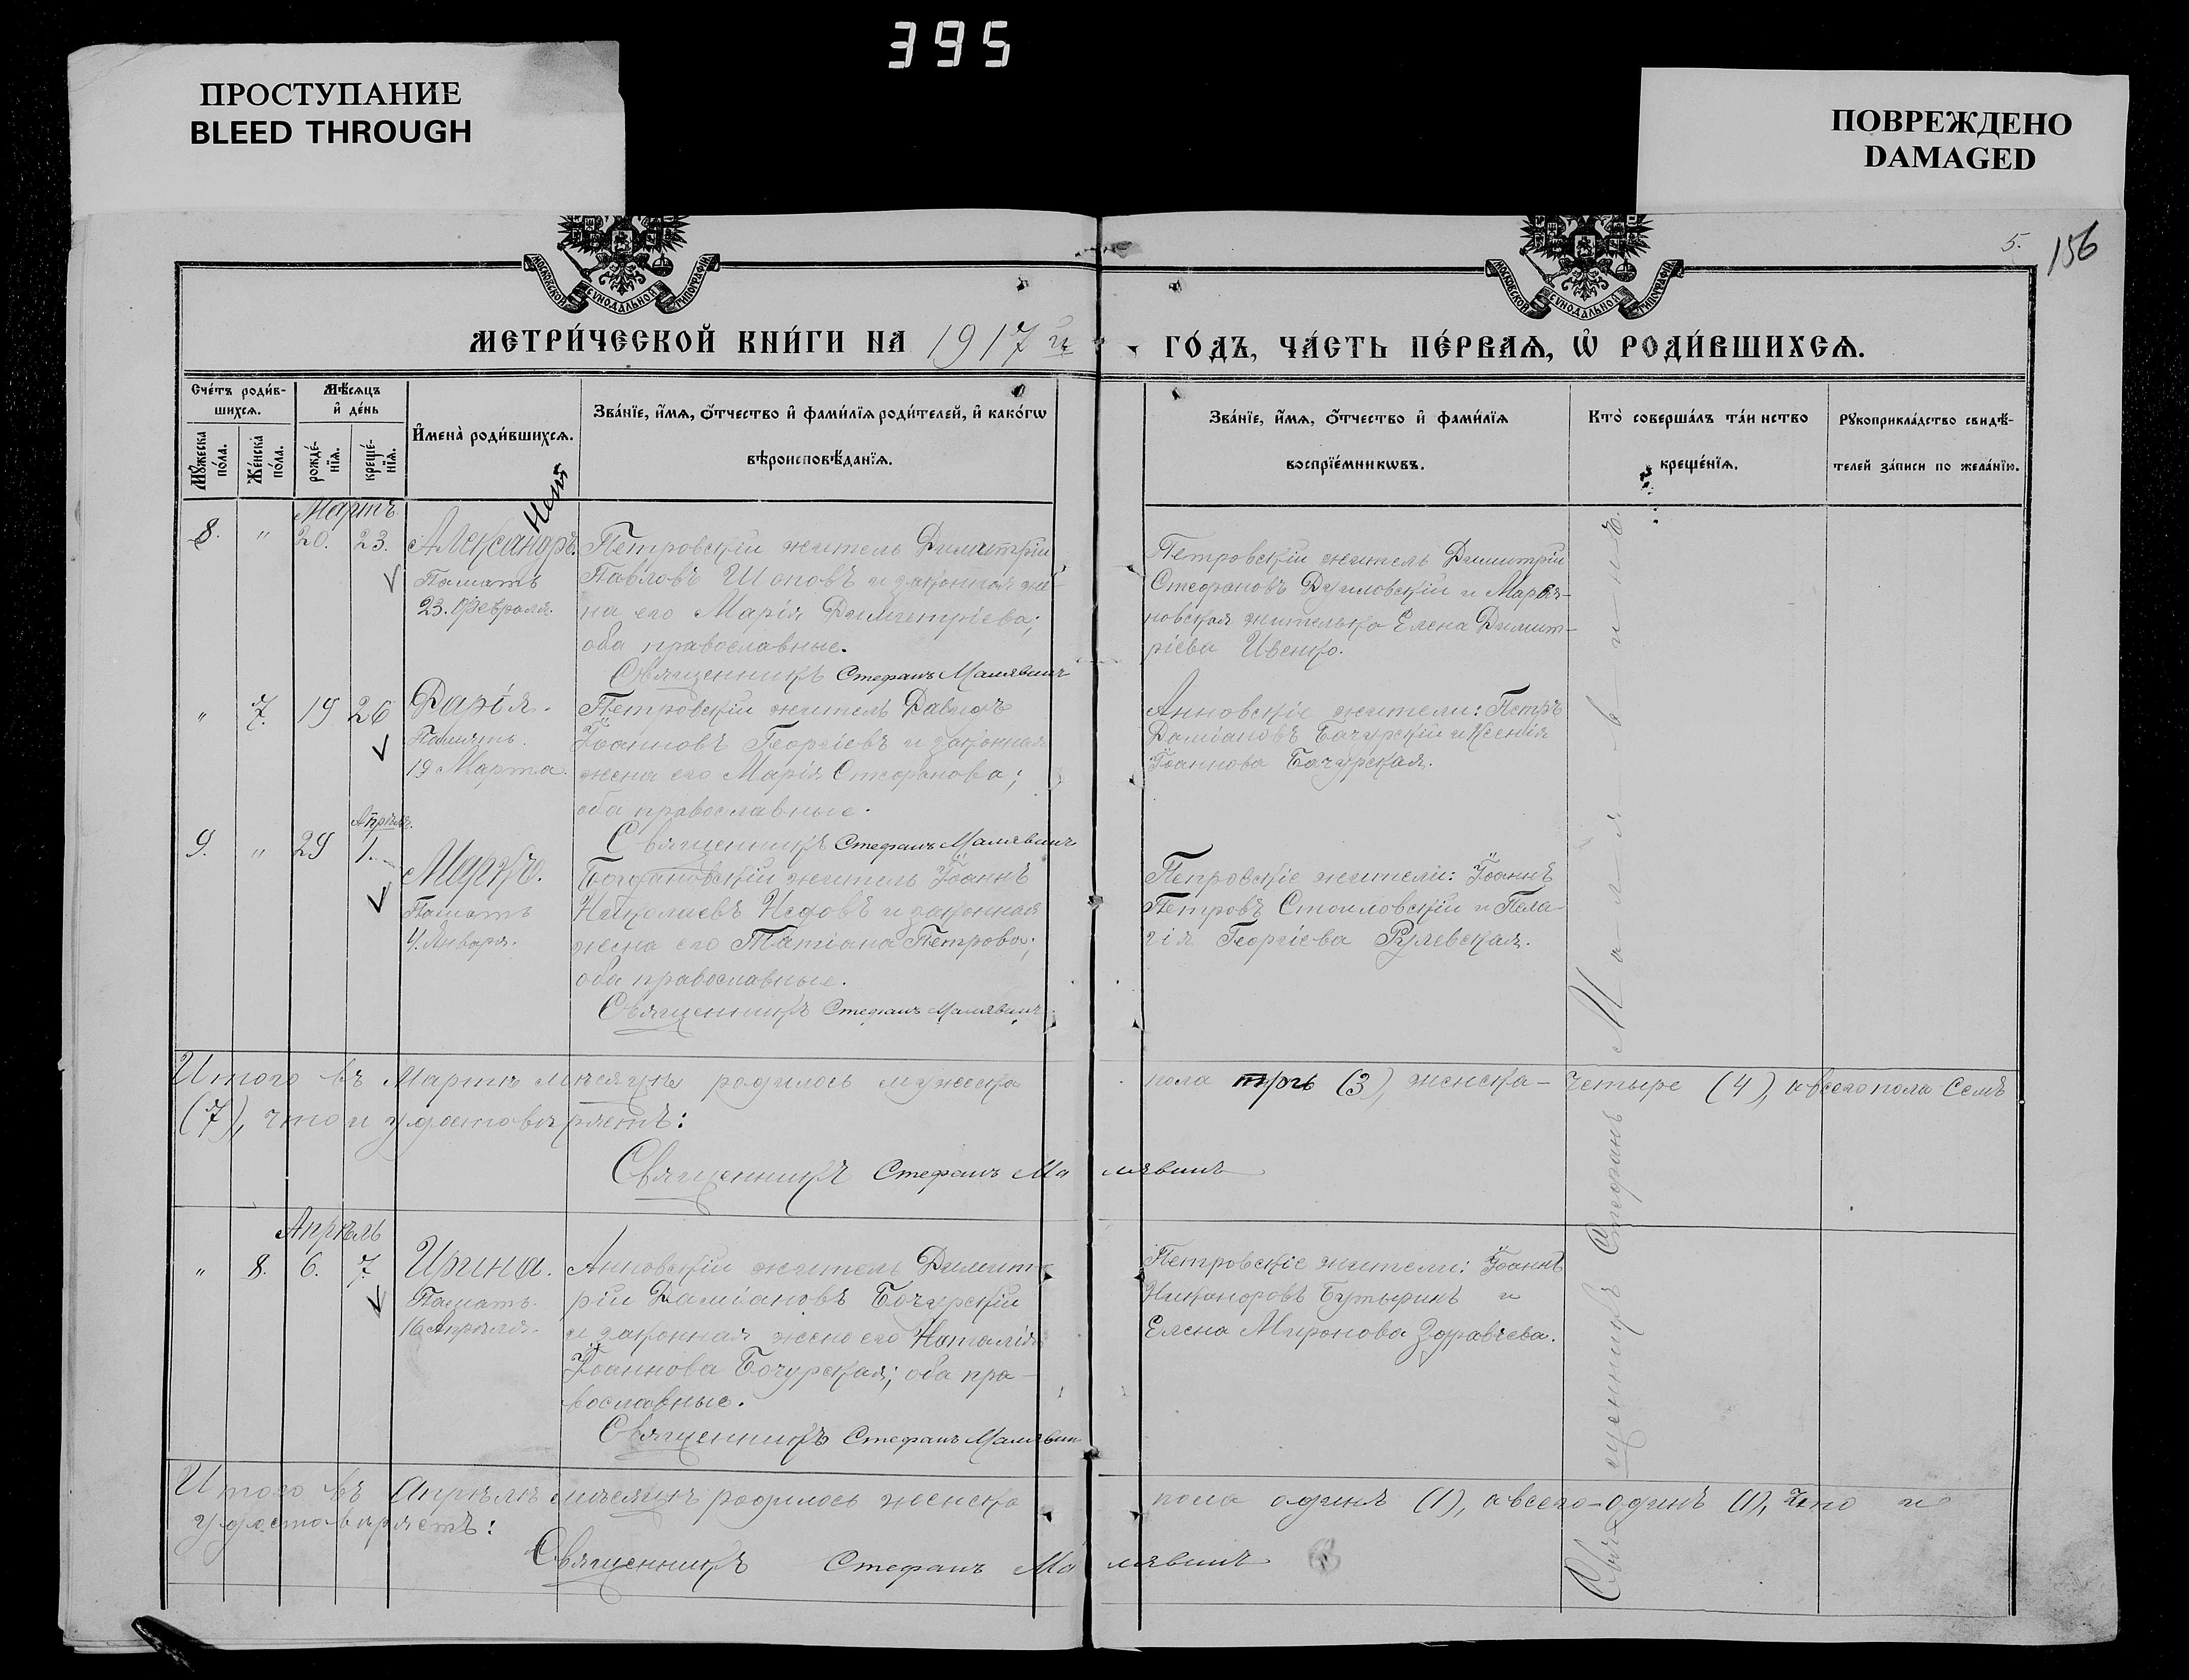 395
ПРОСТУПАНИЕ
BLEED THROUGH
ПОВРЕЖДЕНО
DAMAGED
5.
156
МОСКОВСКОЙ СѴНОДАЛЬНОЙ ТИПОГРАФІИ
МОСКОВСКОЙ СѴНОДАЛЬНОЙ ТИПОГРАФІИ
МЕТРИ́ЧЕСКОЙ КНИ́ГИ НА 1917 й
ГО́ДЪ, ЧА́СТЬ ПЕ́РВАѦ, Ѡ҆ РОДИ́ВШИХСѦ.
Сче́тъ роди́в-
шихсѧ.
Мѣ́сѧцъ
и҆ де́нь
И҆мена̀ роди́вшихсѧ.
Зва́нїе, и҆́мѧ, ѻ҆́тчество и҆ фами́лїѧ роди́телей, и҆ како́гѡ
вѣроисповѣ́данїѧ.
Мꙋ́жеска
по́ла.
Же́нска
по́ла.
рожде́-
нїѧ.
креще́-
нїѧ.
Зва́нїе, и҆́мѧ, ѻ҆́тчество и҆ фами́лїѧ
воспрїе́мникѡвъ.
Кто̀ соверша́лъ та́инство
креще́нїѧ.
Рꙋкоприкла́дство свидѣ́-
телей за́писи по жела́нїю.
Мартъ
8. " 20. 23. Александръ.
Память
23. Февраля.
Петровскій житель Димитрій
Павловъ Шоповъ и законная же-
на его Марія Димитріева;
оба православные.
Священникъ Стефанъ Малявинъ
Петровскій житель Димитрій
Стефановъ и Марья-
новская жителька Елена Димит-
ріева Ивенко.
" 7. 19 26 Дарія.
Память
19 Марта.
Петровскій житель Давидъ
Іоанновъ Георгіевъ и законная
жена его Марія Стефанова;
оба православные.
Священникъ Стефанъ Малявинъ
Анновскіе жители: Петръ
Даміановъ Бачурскій и Ксенія
Іоаннова Бачурская.
Апрѣль.
9. " 29 1. Маркъ.
Память
4. Января.
Богдановскій житель Іоаннъ
Николаевъ Недовъ и законная
жена его Татіана Петрова;
оба православные.
Священникъ Стефанъ Малявинъ
Петровскіе жители: Іоаннъ
Петровъ Стоиловскій и Пела-
гія Георгіева Рулевская.
Итого въ Мартѣ мѣсяцѣ родилось мужеска пола три (3), женска – четыре (4), а всего пола семь
(7), что и удостовѣряетъ:
Священникъ Стефанъ Малявинъ
Апрѣль
" 8. 6. 7 Ирина.
Память
16 Апрѣля.
Анновскій житель Димит-
рій Даміановъ Бочурскій
и законная жена его Наталія
Іоаннова Бочурская; оба пра-
вославные.
Священникъ Стефанъ Малявинъ
Петровскіе жители: Іоаннъ
Никаноровъ Бутыринъ и
Елена Миронова Здравчева.
Священникъ Стефанъ Малявинъ.
Итого въ Апрѣлѣ мѣсяцѣ родилось женска пола одинъ (1), а всего – одинъ (1), что и
удостовѣряетъ:
Священникъ Стефанъ Малявинъ